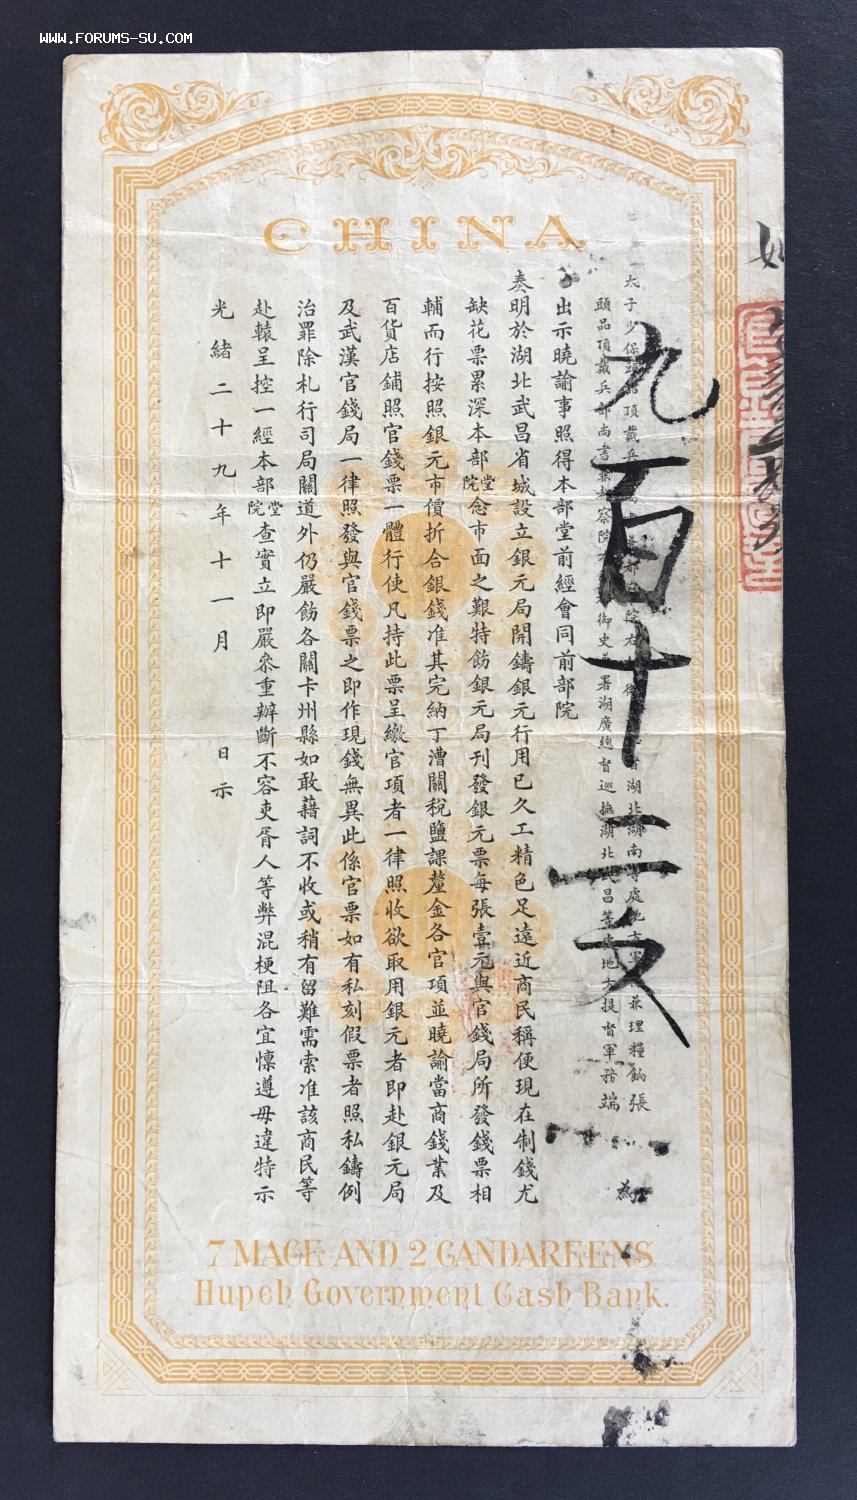 WWW.FORUMS-SU.COM
CHINA
太子少保頭品頂戴兵 右 湖北湖南等處地方軍 兼理糧餉張
頭品頂戴兵部尚書 察院 御史 署湖廣總督巡撫湖北武昌等 地方提督軍務端
為
九百十二文
出示曉諭事照得本部堂前經會同前部院
奏明於湖北武昌省城設立銀元局開鑄銀元行用已久工精色足遠近商民稱便現在制錢尤
缺花票累深本部堂院念市面之艱特飭銀元局刊發銀元票每張壹元與官錢局所發錢票相
輔而行按照銀元市價折合銀錢准其完納丁漕關稅鹽課釐金各官項並曉諭當商錢業及
百貨店鋪照官錢票一體行使凡持此票呈繳官項者一律照收欲取用銀元者即赴銀元局
及武漢官錢局一律照發與官錢票之即作現錢無異此係官票如有私刻假票者照私鑄例
治罪除札行司局關道外仍嚴飭各關卡州縣如敢藉詞不收或稍有留難需索准該商民等
赴轅呈控一經本部堂院查實立即嚴參重辦斷不容吏胥人等弊混梗阻各宜懍遵毋違特示
光緒二十九年十一月 日示
7 MACE AND 2 CANDAREENS
Hupeh Government Cash Bank.